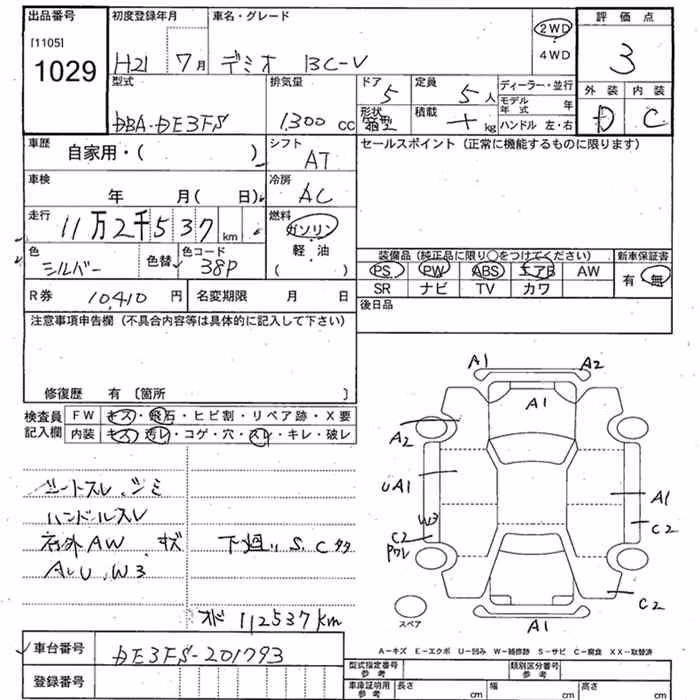 出品番号
[1105]
1029
初度登録年月
H21 7月
車名・グレード
デミオ 13C-V
2WD
4WD
評価点
3
型式
DBA-DE3FS
排気量
1,300 cc
ドア 5
定員 5人
形状 箱型
積載 kg
ディーラー・並行
モデル年式 年
ハンドル 左・右
外装 内装
D C
車歴
自家用・( )
シフト
AT
セールスポイント (正常に機能するものに限ります)
車検
年 月( 日)
冷房
AC
走行
11万2千537km
燃料
ガソリン
軽・油
( )
色
シルバー
色替
色コード
38P
装備品 (純正品に限り○をつけてください)
新車保証書
PS PW ABS エアB AW
有・無
SR ナビ TV カワ
R券 10,410 円
名変期限 月 日
後日品
注意事項申告欄 (不具合内容等は具体的に記入して下さい)
修復歴 有 〔箇所 〕
検査員記入欄
FW キズ・飛石・ヒビ割・リペア跡・X要
内装 キズ・汚レ・コゲ・穴・スレ・キレ・破レ
シートスレ、シミ
ハンドルスレ
社外AW キズ
下廻り S, C
A, U, W3
オド 112537km
A1 A2
A1
A2
UA1
A1
W3
C2
C2
C2
A1
スペア
A-キズ E-エクボ U-凹み W-補修跡 S-サビ C-腐食 XX-取替済
車台番号
DE3FS-201793
登録番号
型式指定番号 参考
類別区分番号 参考
車庫証明用 参考
長さ cm
幅 cm
高さ cm